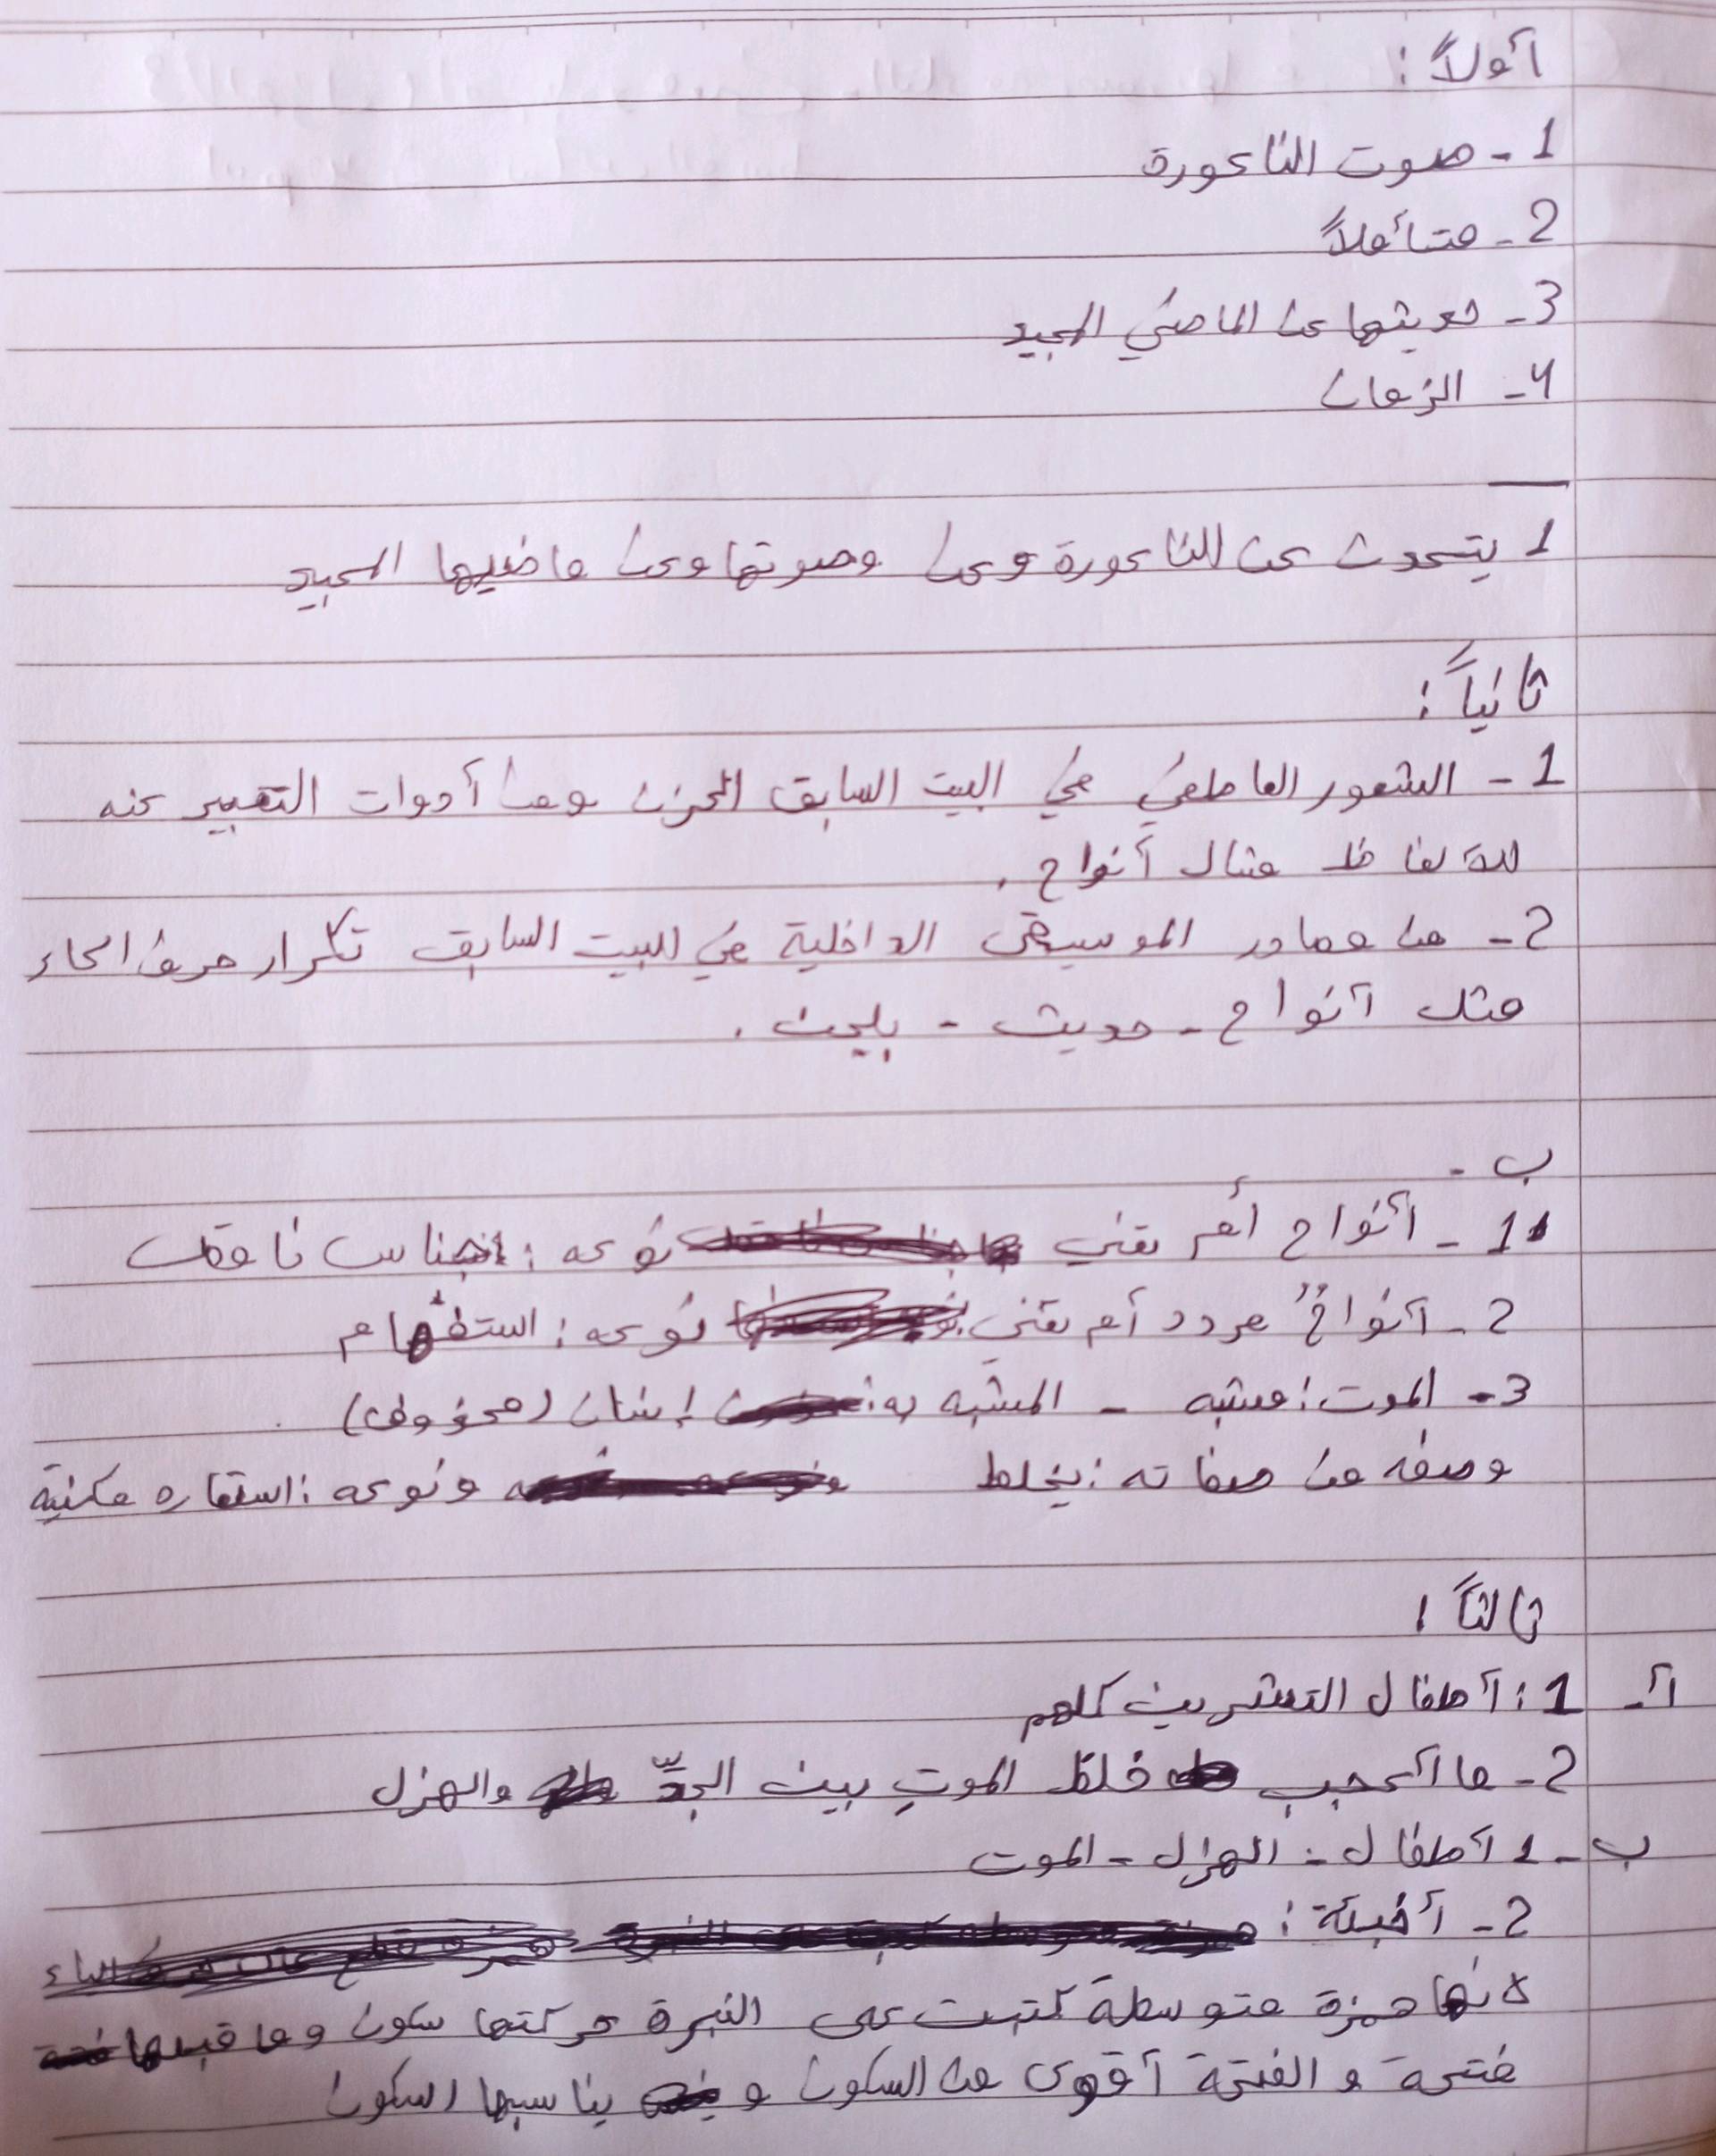 أولاً :
1 - صوت الناعورة
2 - متسائلاً
3 - حديثها عن الماضي المجيد
4 - الزمان
1 يتحدث عن الناعورة وعن وصوتها وعن ماضيها المجيد
ثانياً :
1 - الشعور العاطفي في البيت السابق الحزن ومن أدوات التعبير عنه
الألفاظ مثال أنواح .
2 - من مصادر الموسيقى الداخلية في البيت السابق تكرار حرف الحاء
مثل أنواح - حديث - بلحن .
ب -
1 - أنواح أم تغني نوعه : جناس ناقص
2 - أنواحٌ مردد أم تغني نوعه : استفهام
3 - الموت : مشبه - المشبه به : إنسان (محذوف)
وصفه من صفاته : يخلط ونوعه : استعاره مكنية
ثالثاً :
أ - 1 : أطفال التشرين كلهم
2 - ما أعجب خلط الموتِ بين الجدِّ والهزل
ب - 1 أطفال - الهزل - الموت
2 - أخبئة :
لانها همزة متوسطة كتبت على النبرة حركتها سكون وما قبلها
فتحة و الفتحة أقوى من السكون و يناسبها السكون